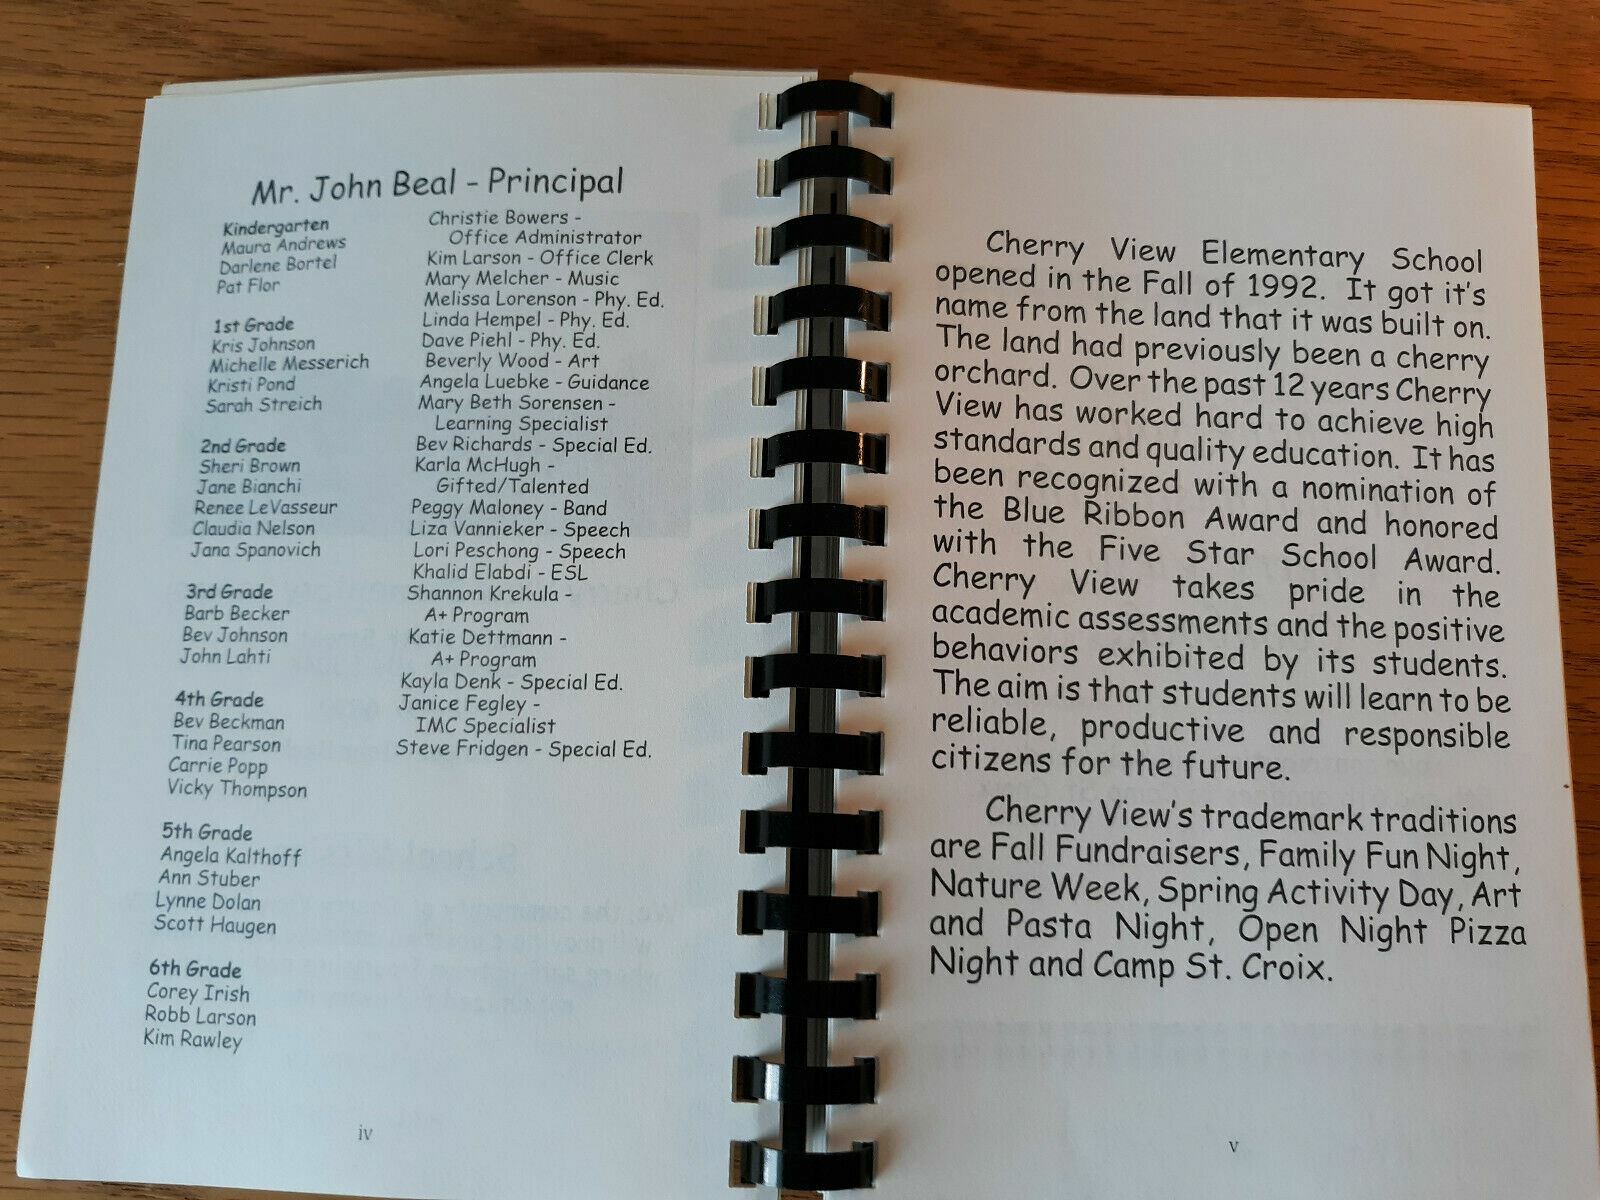 Mr. John Beal - Principal
Kindergarten
Maura Andrews
Darlene Bortel
Pat Flor
1st Grade
Kris Johnson
Michelle Messerich
Kristi Pond
Sarah Streich
2nd Grade
Sheri Brown
Jane Bianchi
Renee LeVasseur
Claudia Nelson
Jana Spanovich
3rd Grade
Barb Becker
Bev Johnson
John Lahti
4th Grade
Bev Beckman
Tina Pearson
Carrie Popp
Vicky Thompson
5th Grade
Angela Kalthoff
Ann Stuber
Lynne Dolan
Scott Haugen
6th Grade
Corey Irish
Robb Larson
Kim Rawley
Christie Bowers -
Office Administrator
Kim Larson - Office Clerk
Mary Melcher - Music
Melissa Lorenson - Phy. Ed.
Linda Hempel - Phy. Ed.
Dave Piehl - Phy. Ed.
Beverly Wood - Art
Angela Luebke - Guidance
Mary Beth Sorensen -
Learning Specialist
Bev Richards - Special Ed.
Karla McHugh -
Gifted/Talented
Peggy Maloney - Band
Liza Vannieker - Speech
Lori Peschong - Speech
Khalid Elabdi - ESL
Shannon Krekula -
A+ Program
Katie Dettmann -
A+ Program
Kayla Denk - Special Ed.
Janice Fegley -
IMC Specialist
Steve Fridgen - Special Ed.
iv
Cherry View Elementary School
opened in the Fall of 1992. It got it's
name from the land that it was built on.
The land had previously been a cherry
orchard. Over the past 12 years Cherry
View has worked hard to achieve high
standards and quality education. It has
been recognized with a nomination of
the Blue Ribbon Award and honored
with the Five Star School Award.
Cherry View takes pride in the
academic assessments and the positive
behaviors exhibited by its students.
The aim is that students will learn to be
reliable, productive and responsible
citizens for the future.
Cherry View's trademark traditions
are Fall Fundraisers, Family Fun Night,
Nature Week, Spring Activity Day, Art
and Pasta Night, Open Night Pizza
Night and Camp St. Croix.
v